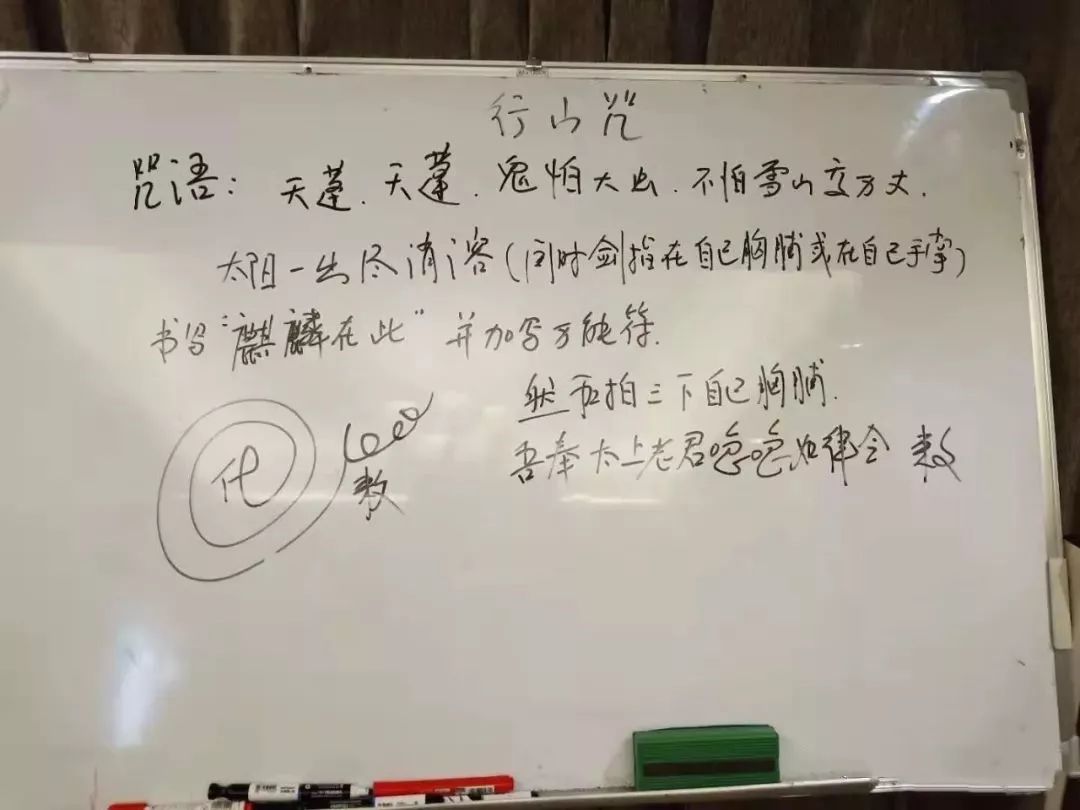 行山咒
咒语：天蓬.天蓬.鬼怕大虫.不怕雪山变万丈.
太阳一出尽消溶(同时剑指在自己胸脯或在自己手掌)
书写"麒麟在此"并加写万能符.
然后拍三下自己胸脯.
吾奉太上老君急急如律令 敕
化
敕